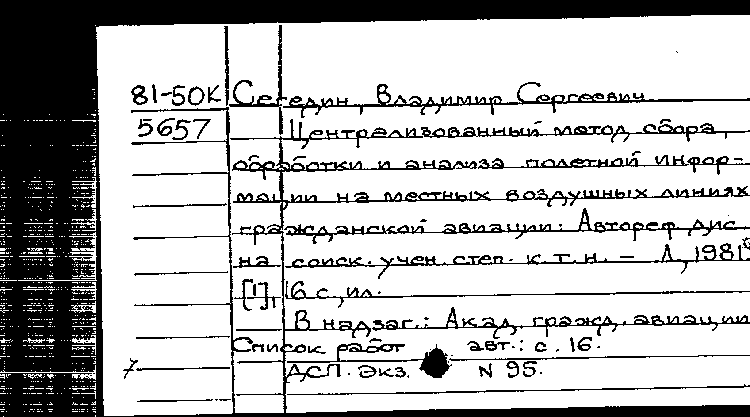 81-50К Сегедин, Владимир Сергеевич
5657 Централизованный метод сбора,
обработки и анализа полетной инфор-
мации на местных воздушных линиях
гражданской авиации: Автореф дис
на соиск. учен. степ. к.т.н. – Л, 1981
[1], 16 с., ил.
В надзаг.: Акад. гражд. авиации
Список работ авт.: с. 16.
7 ДСП. Экз. N 95.